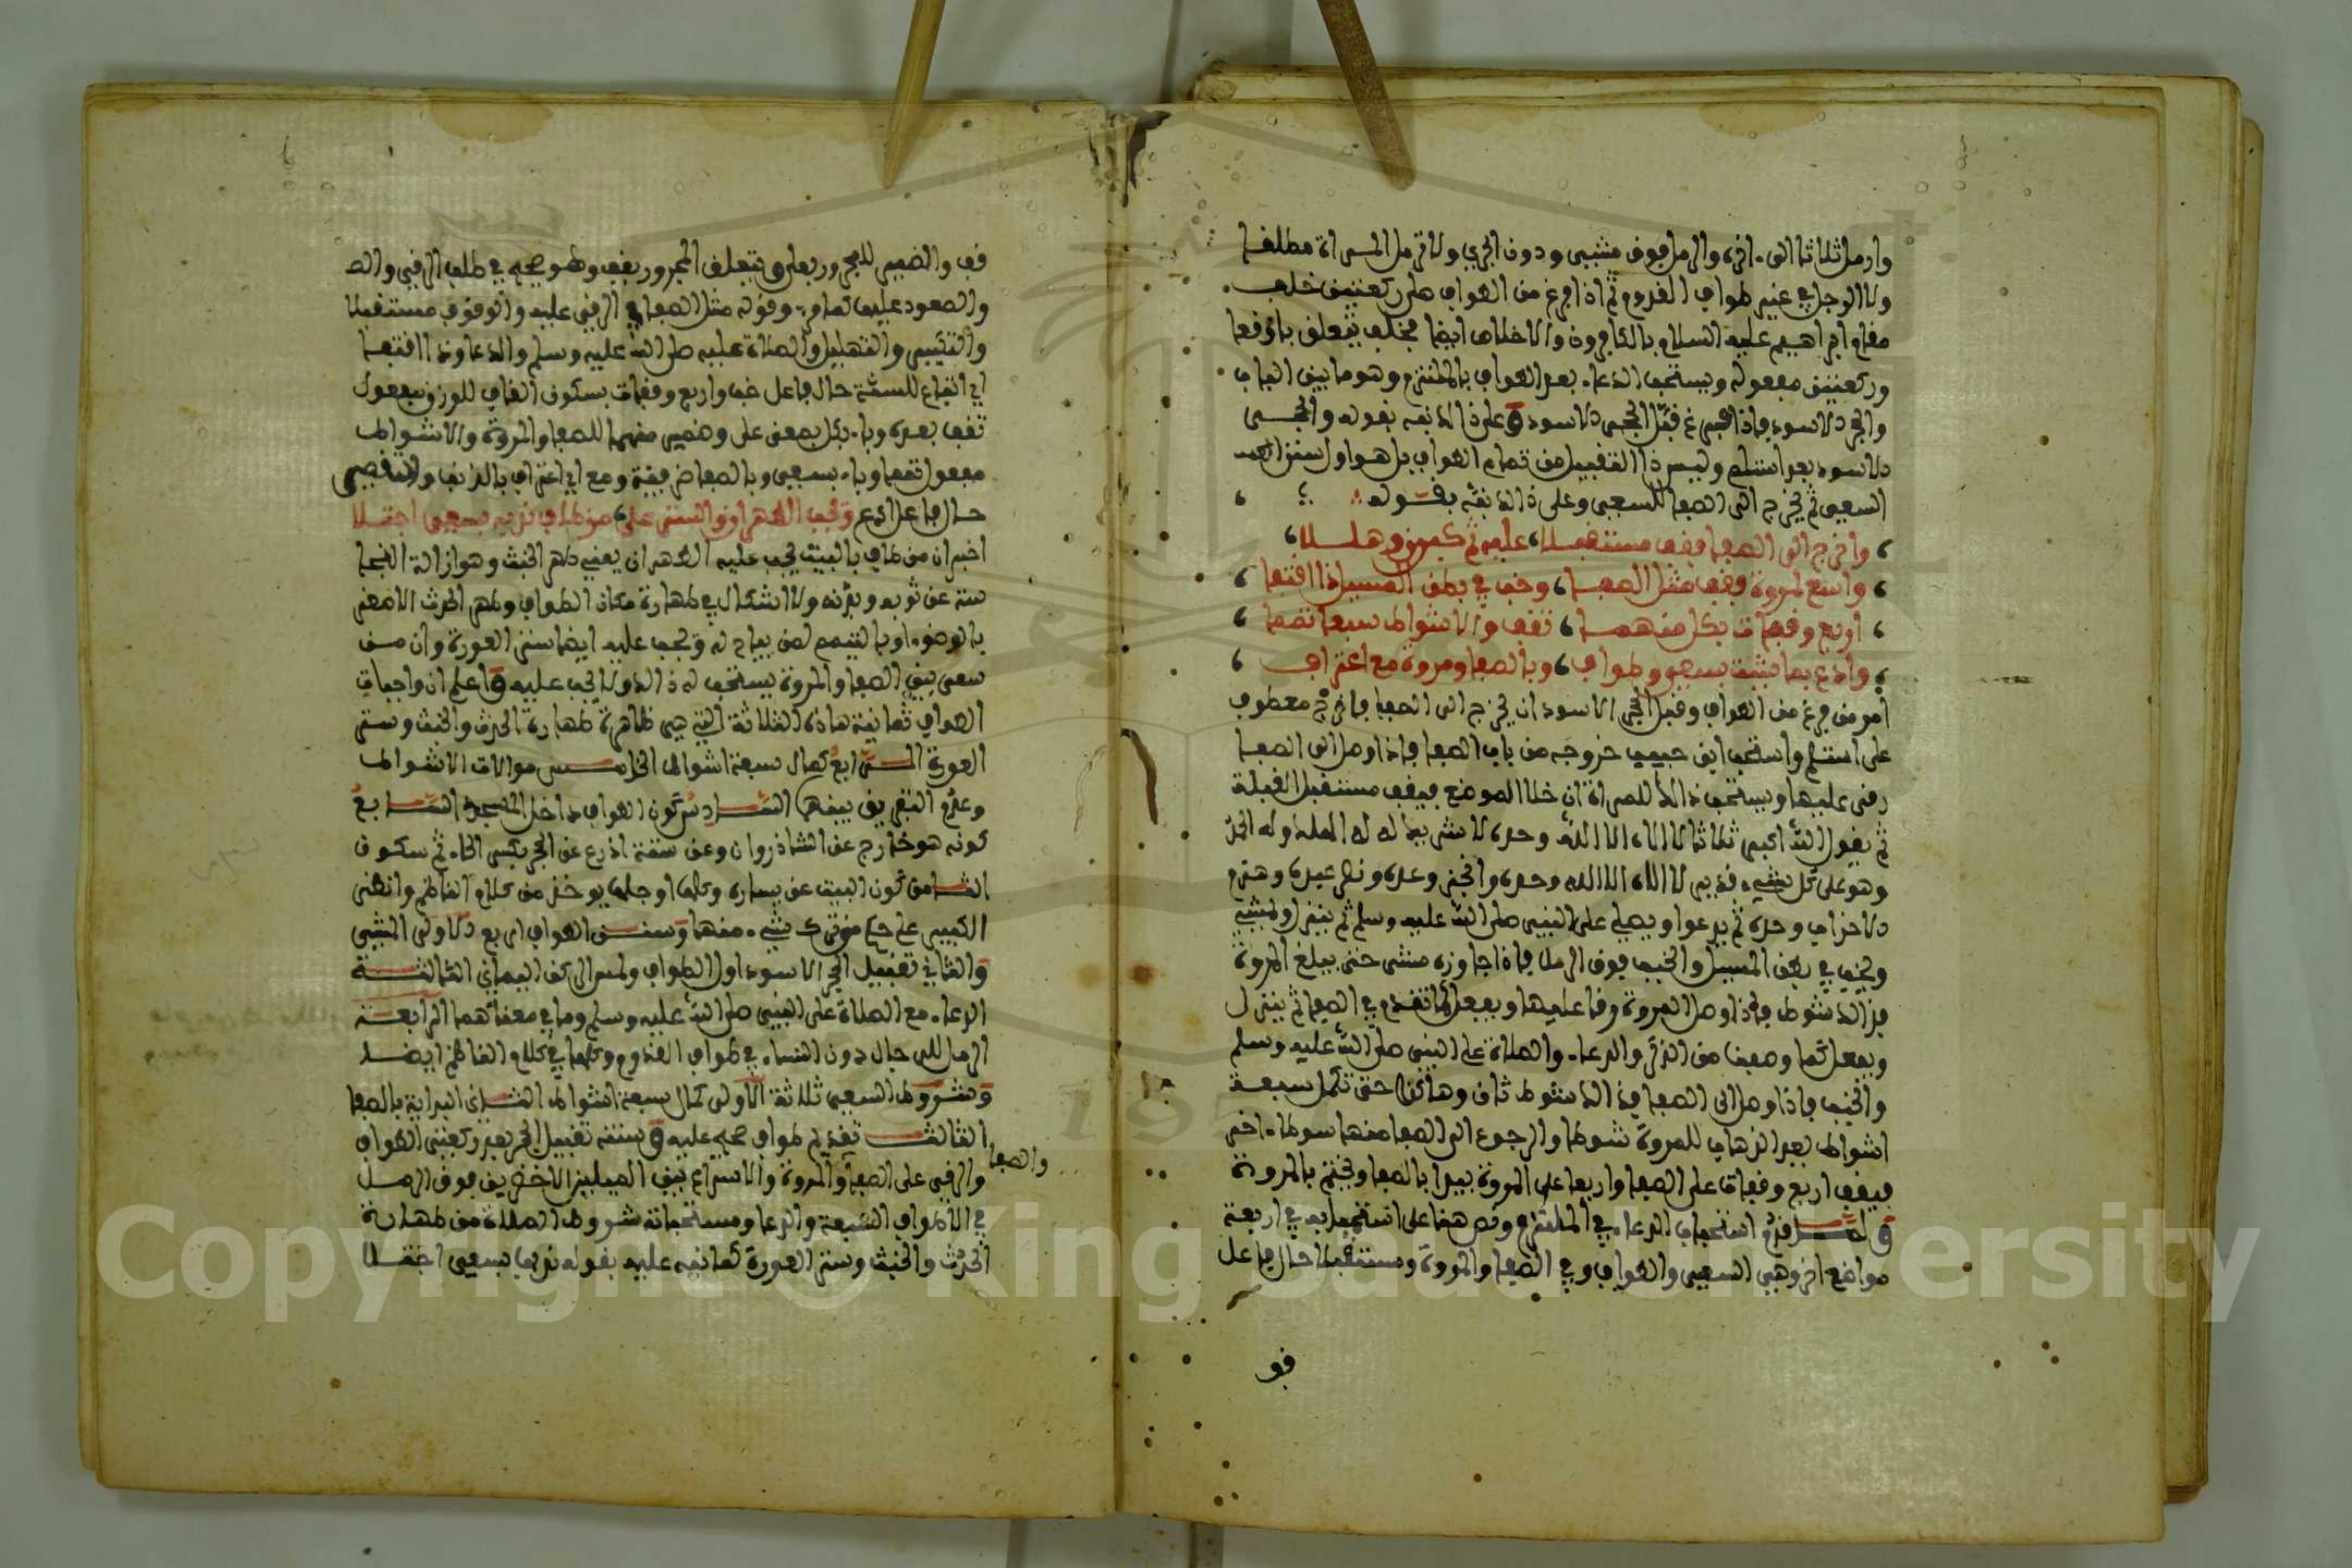 وارمل ثلاثا الى ءاخره والرمل فوق مشيى ودون الجري ولا ترمل المراة مطلقا
ولا الرجل في غير طواف القدوم ثم اذا فرغ من الطواف صلى ركعتين خلف
مقام ابراهيم عليه السلام بالكافرون والاخلاص ايضا فخلف يتعلق باوقعا
وركعتين مفعوله ويستحب الدعاء بعد الطواف بالملتزم وهو ما بين الباب
والحجر الاسود فاذا فرغ قبل الحجر الاسود وعلى ذالك نبه بقوله والحجر
الاسود بعد استلم وليس ذا التقبيل من تمام الطواف بل هو اول سنن
السعي ثم يخرج الى الصفا للسعي وعلى ذالك نبه بقوله
واخرج الى الصفا فقف مستقبلا عليه ثم كبرن وهللا
واسع لمروة فقف مثل الصفا وخب في بطن المسيل ذا اقتفا
اربع وقفات بكل منهما تقف والاشواط سبعا تمما
وادع بما شئت بسعي وطواف وبالصفا ومروة مع اعتراف
امر من فرغ من الطواف وقبل الحجر الاسود ان يخرج الى الصفا فاخرج معطوف
على استلم واستحب ابن حبيب خروجه من باب الصفا فاذا وصل الى الصفا
رقى عليها ويستحب ذالك للمراة ان خلا الموضع فيقف مستقبل القبلة
ثم يقول الله اكبر ثلاثا لا اله الا الله وحده لا شريك له له الملك وله الحمد
وهو على كل شيء قدير لا اله الا الله وحده وانجز وعده ونصر عبده وهزم
الاحزاب وحده ثم يدعوا ويصلي على النبي صلى الله عليه وسلم ثم ينزل ويمشي
ويخب في بطن المسيل والخبب فوق الرمل فاذا جاوزه مشى حتى يبلغ المروة
فذالك شوط فاذا وصل المروة رقا عليها ويفعل كما تقدم في الصفا ثم ينزل
ويفعل كما وصفنا من الذكر والدعاء والصلاة على النبي صلى الله عليه وسلم
والخبب فاذا وصل الى الصفا فذالك شوط ثان وهاكذا حتى تكمل سبعة
اشواط بعد الذهاب للمروة شوطا والرجوع الى الصفا منها شوطا ءاخر
فيقف اربع وقفات على الصفا واربعا على المروة يبدا بالصفا ويختم بالمروة
وقدم استحباب الدعاء في الملتزم ونص هنا على استحبابه في اربعة
مواضع اخر وهي السعي والطواف وفي الصفا والمروة ومستقبلا حال فاعل
فو
قف والضمير للمجرور بعلى ويتعلق المجرور بقف وهو صحيح في طلب الرقي
والصعود عليها وقوله مثل الصفا في الرقي عليه والوقوف مستقبلا
والتكبير والتهليل والصلاة عليه صلى الله عليه وسلم والدعاء وذا اقتفا
اي اتباع للسنة حال فاعل خب واربع وقفات بسكون القاف للوزن مفعول
تقف بعده وباء بكل بمعنى على وضمير منهما للصفا والمروة والاشواط
مفعول تمما وباء بسعي وبالصفا ظرفية ومع اي اعتراف بالذنب والتقصير
حال فاعل ادع ويجب الطهران والستر على من طاف ندبها بسعي اجتلا
اخبر ان من طاف بالبيت يجب عليه الطهران يعني طهر الخبث وهو ازالة النجا
سة عن ثوبه وبدنه ولا اشكال في طهارة مكان الطواف وطهر الحدث الاصغر
بالوضوء او بالتيمم لمن يباح له ويجب عليه ايضا ستر العورة وان من
سعى بين الصفا والمروة يستحب له ذالك ولا يجب عليه واعلم ان واجبات
الطواف ثمانية هاذه الثلاثة التي هي ظاهرة طهارة الحدث والخبث وستر
العورة الرابع كمال سبعة اشواط الخامس موالات الاشواط
وعدم التفريق بينها السادس كون الطواف داخل المسجد السابع
كونه هو خارج عن الشاذروان وعن ستة اذرع عن الحجر بكسر الحاء ثم سكون
الثامن كون البيت عن يساره وكلها او جلها يوخذ من كلام الناظم وانظر
الكبير على حكم من ترك شيء منها وسنن الطواف اربع الاولى المشي
والثاني تقبيل الحجر الاسود اول الطواف ولمس الركن اليماني الثالثة
الدعاء مع الصلاة على النبي صلى الله عليه وسلم وما في معناهما الرابعة
الرمل للرجال دون النساء في طواف القدوم وكلها في كلام الناظم ايضا
وشروط السعي ثلاثة الاولى كمال سبعة اشواط الثاني البداية بالصفا
الثالث تقديم طواف صحيح عليه وسننه تقبيل الحجر بعد ركعتي الطواف
والرقي على الصفا والمروة والاسراع بين الميلين الاخضرين فوق الرمل
والصفا
في الاطواف السبعة والدعا ومستحباته شروط الصلاة من طهارة
الحدث والخبث وستر العورة كما نبه عليه بقوله ندبها بسعي اجتلا